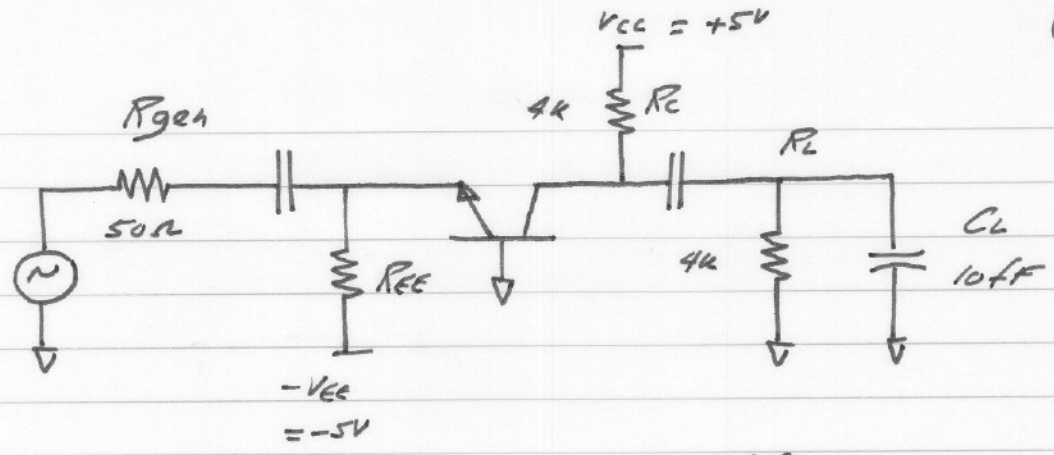 VCC = +5V
Rgen
4k RC
RL
50Ω
REE
4k
CL
10fF
-VEE
= -5V